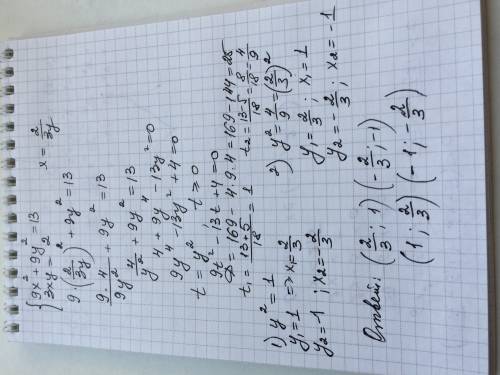 {9x²+9y²=13
{3xy=2    x=2/3y
9(2/3y)²+9y²=13
9·4/9y²+9y²=13
4/y²+9y²=13
4+9y⁴-13y²=0
9y⁴-13y²+4=0
t=y²   t≥0
9t²-13t+4=0
D=169-4·9·4=169-144=25
t₁=13+5/18=1   t₂=13-5/18=8/18=4/9
1) y²=1
y₁=1 => x₁=2/3
y₂=-1 ; x₂=-2/3
2) y²=4/9=(2/3)²
y₁=2/3 ; x₁=1
y₂=-2/3 ; x₂=-1
Ответ: (2/3 ; 1) (-2/3 ; -1)
(1 ; 2/3) (-1 ; -2/3)